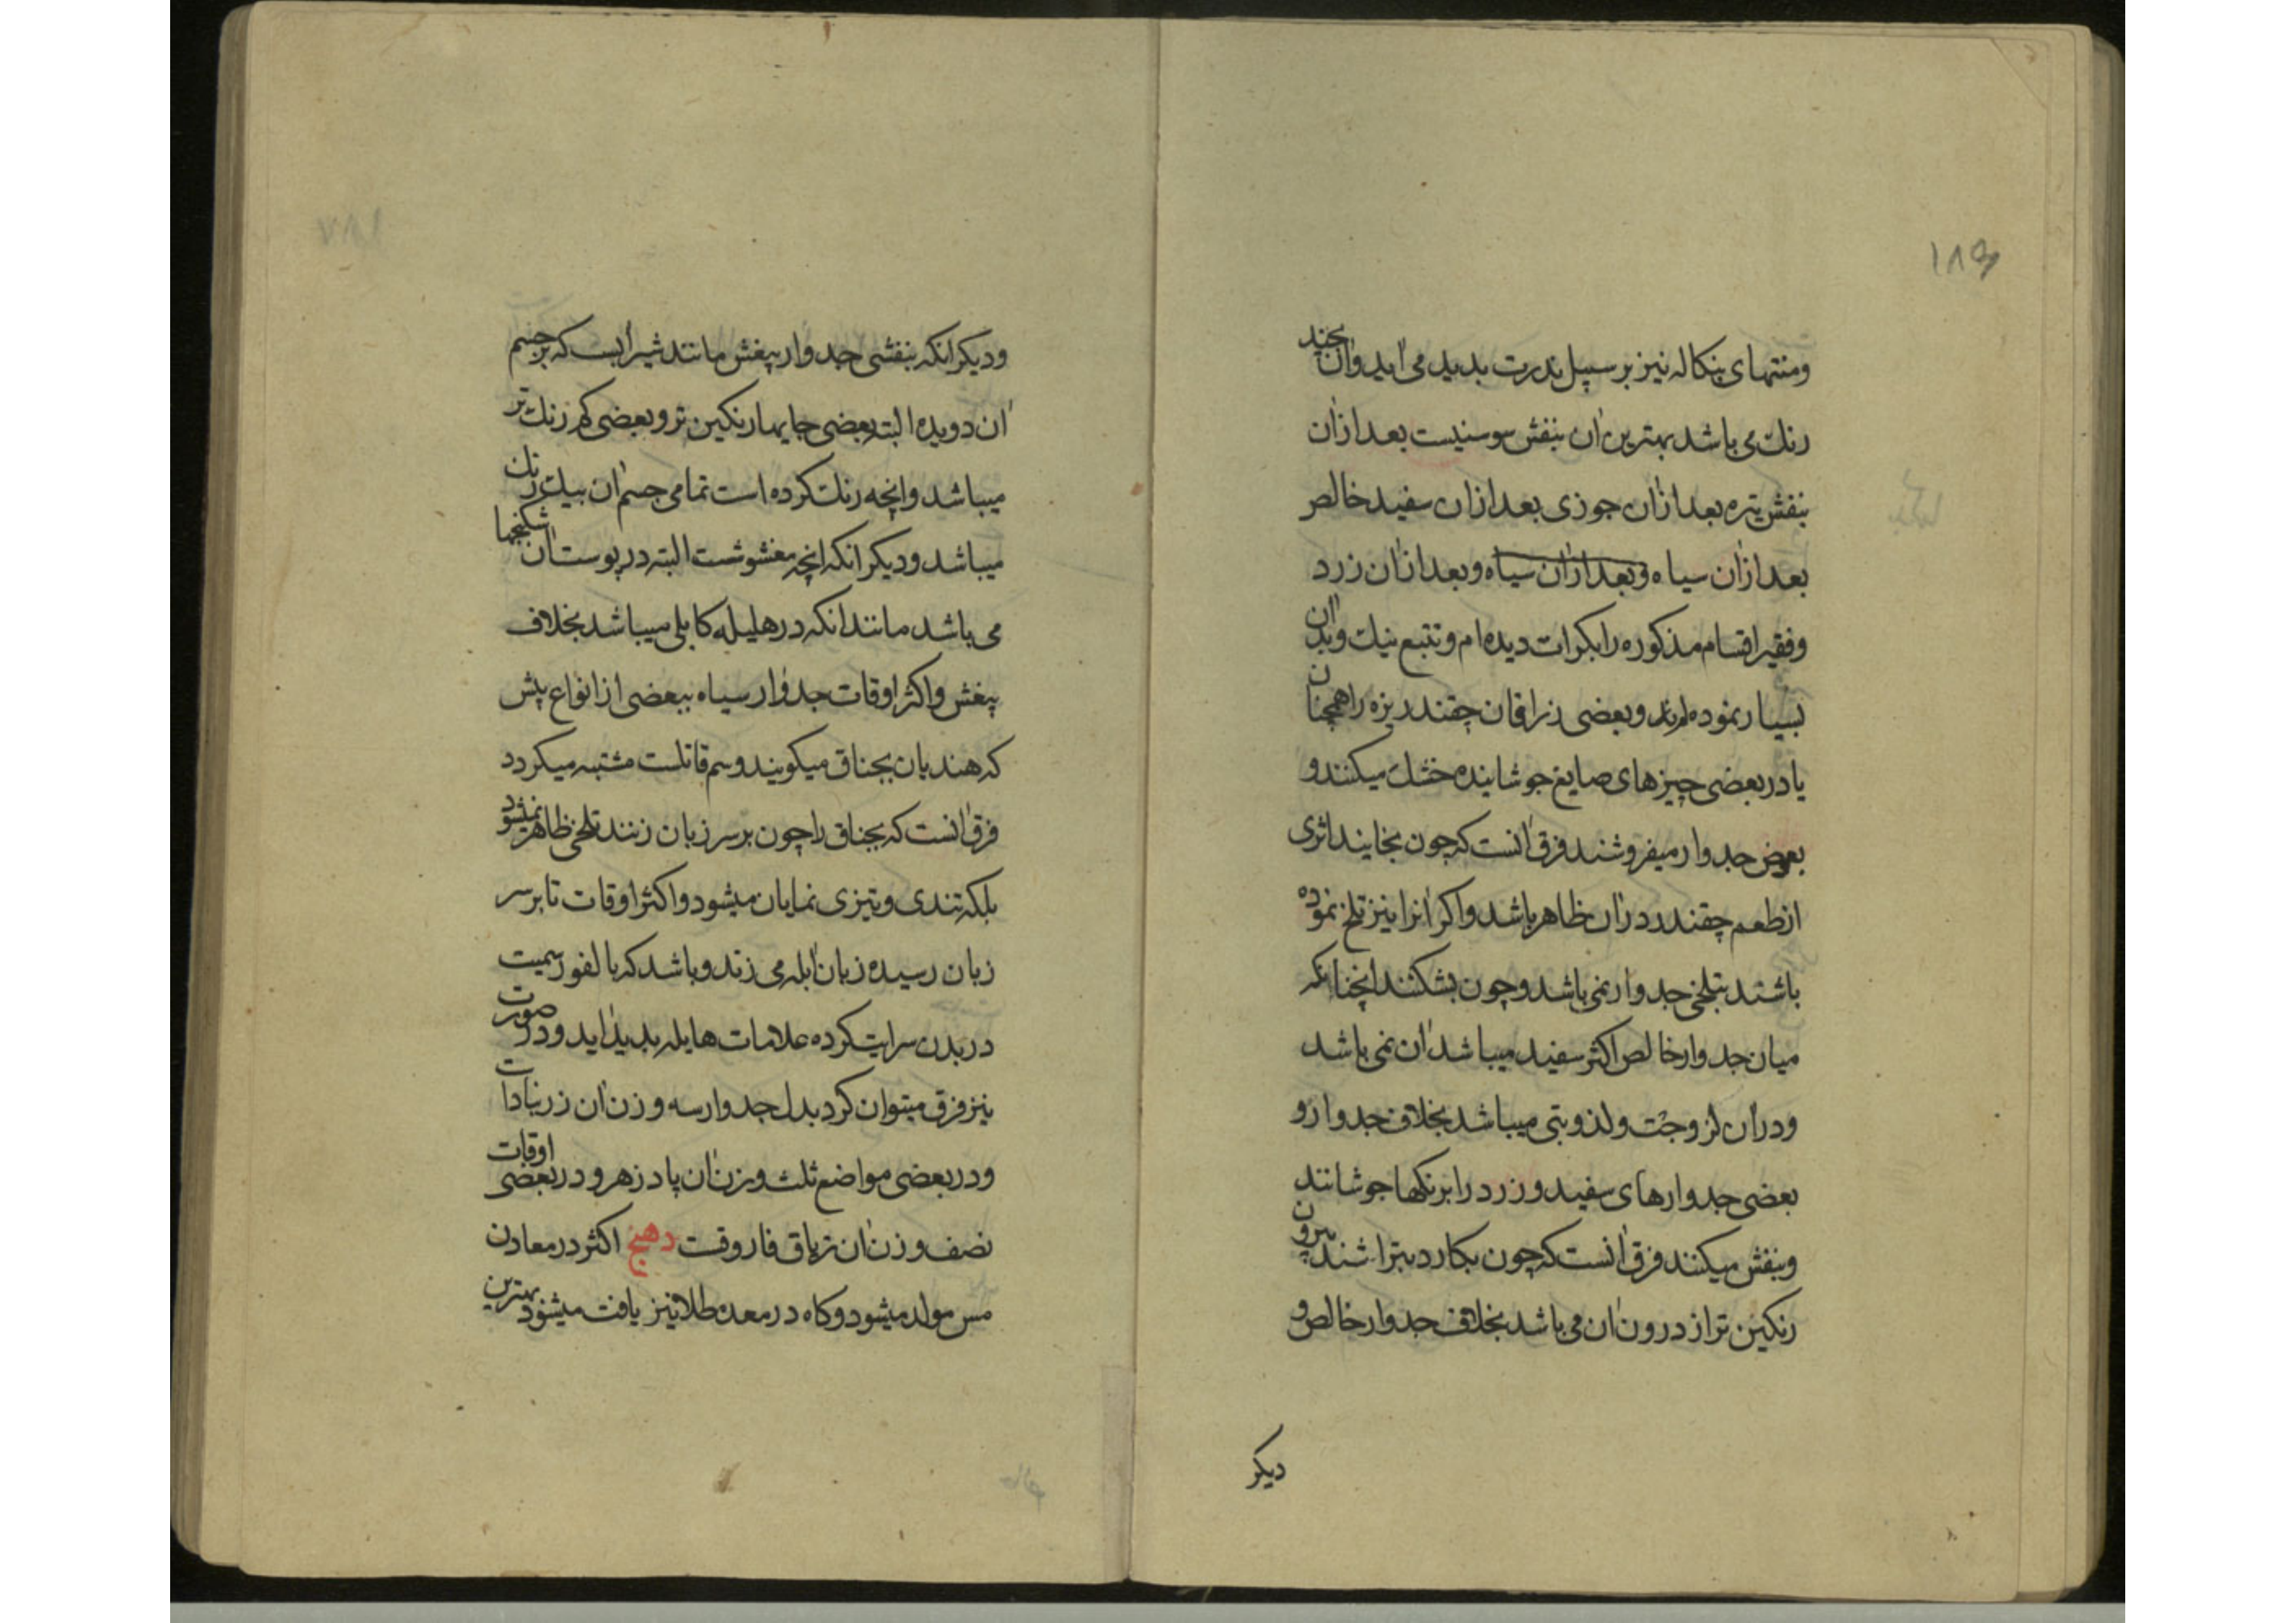 ۱۸۶
ومنتهای بنکاله نیز بر سبیل ندرت بدید می آید وآن بچند
رنك می باشد بهترین آن بنفش سوسنیست بعد ازان
بنفش تیره بعد ازان جوزی بعد ازان سفید خالص
بعد ازان سیاه وبعد ازان سیاه وبعد ازان زرد
وفقیر اقسام مذکوره را بکرات دیده ام وتتبع نیك وبد آن
بسیار نموده ام وبعضی زراقان چقندر یزه را همچنان
یا در بعضی چیزهای صایغ جوشاینده خشك میکنند و
بعوض جدوار میفروشند فرق آنست که چون بخایند اثری
از طعم چقندر دران ظاهر باشد واکر آنرا نیز تلخ نموده
باشند بتلخی جدوار نمی باشد وچون بشکنند آنچنانکه
میان جدوار خالص اکثر سفید میباشد آن نمی باشد
ودران لزوجت ولذوبتی میباشد بخلاف جدوار و
بعضی جدوارهای سفید وزرد را برنکها جوشانند
وبنفش میکنند فرق آنست که چون بکارد بتراشند بیرون
رنکین تر از درون آن می باشد بخلاف جدوار خالص و
دیکر
ودیکر انکه بنفشی جدوار بیغش مانند شیرابست که بر جسم
آن دویده البته بعضی جایها رنکین تر وبعضی کم رنك تر
میباشد وانچه رنك کرده است تمامی جسم آن بیك رنك
میباشد ودیکر انکه انچه مغشوشست البته در پوست آن شکنجها
می باشد مانند انکه در هلیله کابلی میباشد بخلاف
بیغش واکثر اوقات جدوار سیاه ببعضی از انواع بیش
که هندیان بجناق میکویند وسم قاتلست مشتبه میکردد
فرق آنست که بجناق را چون بر سر زبان زنند تلخی ظاهر نمیشود
بلکه تندی وتیزی نمایان میشود واکثر اوقات تا بر سر
زبان رسیده زبان آبله می زند وباشد که بالفور سمیت
در بدن سرایت کرده علامات هایله بدید آید ودر صورت
نیز فرق میتوان کرد بدل جدوار سه وزن آن زرنبادات
ودر بعضی مواضع ثلث وزن آن پادزهر ودر بعضی اوقات
نصف وزن آن تریاق فاروقت دهنج اکثر در معادن
مس مولد میشود وکاه در معدن طلا نیز یافت میشود بهترین